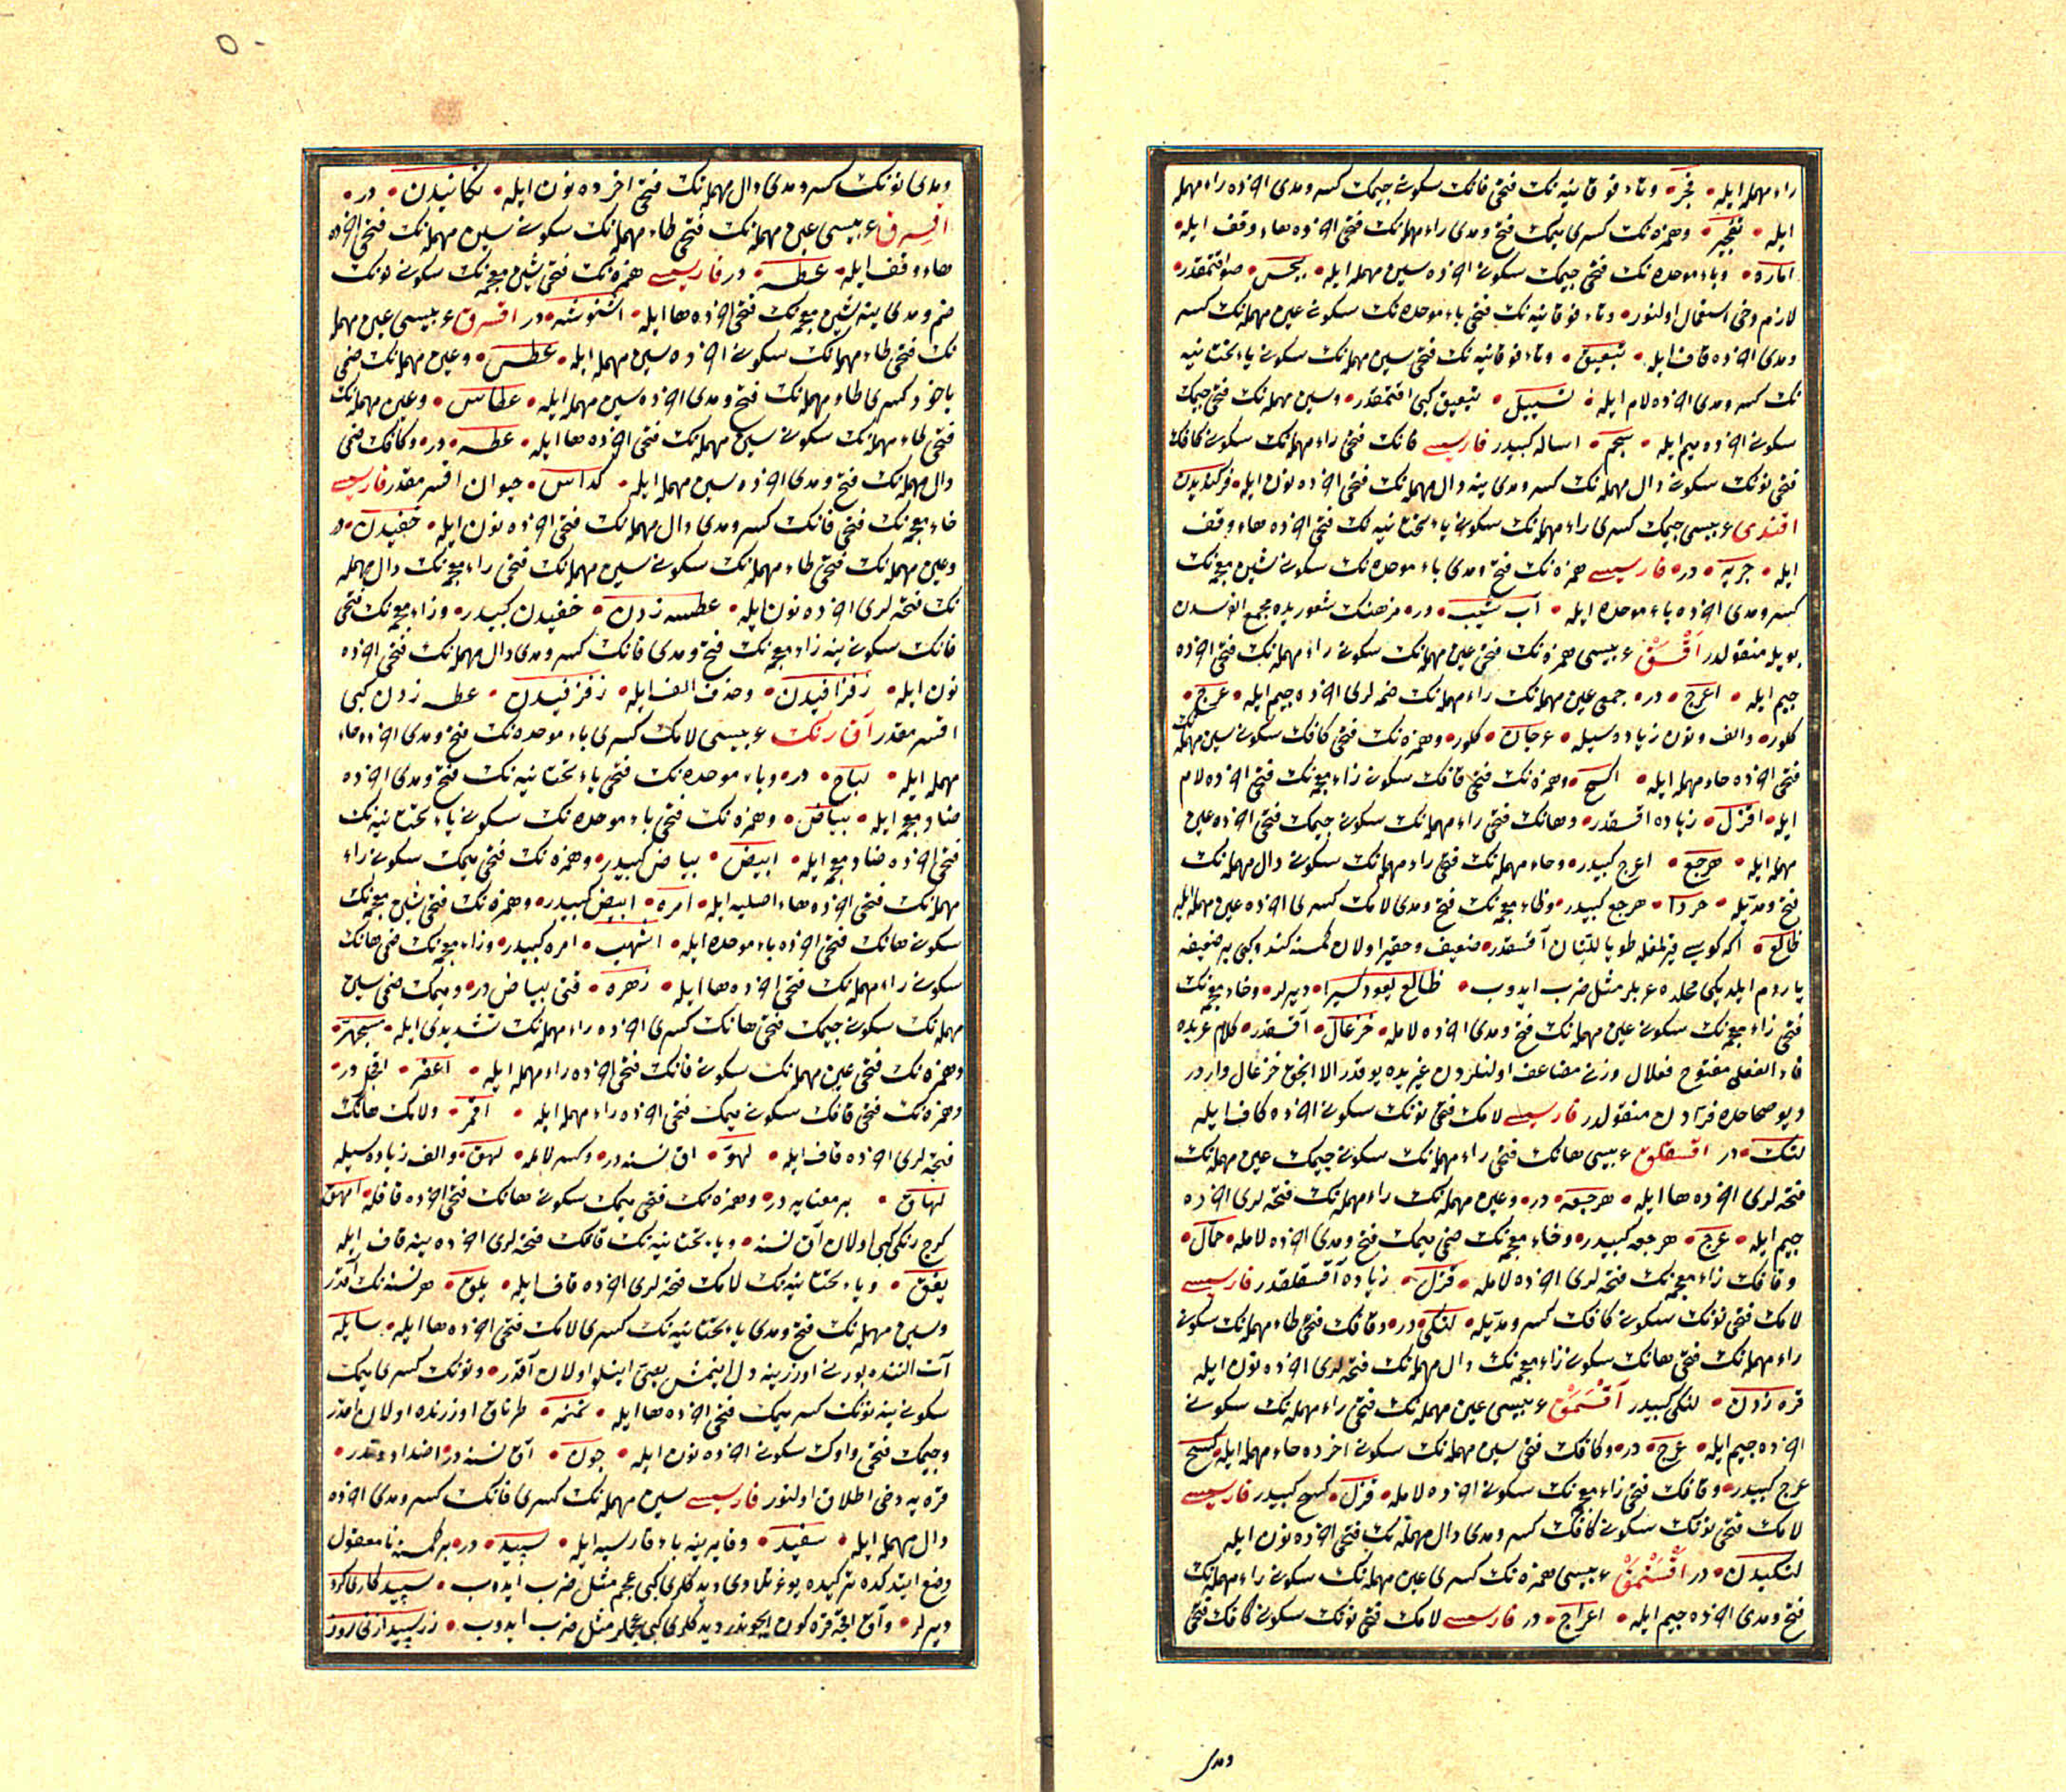 راء مهمله ايله فجر وتاء فوقانيه نك فتحى فانك سكونى جيمك كسر ومدى اخرده راء مهمله
ايله تفجير وهمزه نك كسرى ميمك فتح ومدى راء مهمله نك فتحى اخرده هاء وقف ايله
اماره وباء موحده نك فتحى جيمك سكونى اخرده سين مهمله ايله بجس صو اقتمقدر
لازم دخى استعمال اولنور وتاء فوقانيه نك فتحى باء موحده نك سكونى عين مهمله نك كسر
ومدى اخرده قاف ايله تبعيق وتاء فوقانيه نك فتحى سين مهمله نك سكونى ياء تحتانيه
نك كسر ومدى اخرده لام ايله تسييل تبعيق كبى اقتمقدر وسين مهمله نك فتحى جيمك
سكونى اخرده ميم ايله سجم اساله كبيدر فارسيسى فانك فتحى راء مهمله نك سكونى كافك
فتحى نونك سكونى دال مهمله نك كسر ومدى ينه دال مهمله نك فتحى اخرده نون ايله فركنديدن
اقندى عربيسى جيمك كسرى راء مهمله نك سكونى ياء تحتانيه نك فتحى اخرده هاء وقف
ايله جريه در فارسيسى همزه نك فتح ومدى باء موحده نك سكونى شين معجمه نك
كسر ومدى اخرده باء موحده ايله آب شيب در فرهنك شعوريده مجمع الفرسدن
بويله منقولدر اقسق عربيسى همزه نك فتحى عين مهمله نك سكونى راء مهمله نك فتحى اخرده
جيم ايله اعرج در جمعى عين مهمله نك راء مهمله نك ضمه لرى اخرده جيم ايله عرج
كلور والف ونون زياده سيله عرجان كلور وهمزه نك فتحى كافك سكونى سين مهمله نك
فتحى اخرده حاء مهمله ايله اكسح وهمزه نك فتحى قافك سكونى زاء معجمه نك فتحى اخرده لام
ايله اقزل زياده اقسقدر وهانك فتحى راء مهمله نك سكونى جيمك فتحى اخرده عين
مهمله ايله هرجع اعرج كبيدر وحاء مهمله نك فتحى راء مهمله نك سكونى دال مهمله نك
فتح ومديله حردا هرجع كبيدر وظاء معجمه نك فتح ومدى لامك كسرى اخرده عين مهمله ايله
ظالع در ضعيف وحقير اولان كمسنه كندو كبى بر ضعيفه
ياردم ايلديكى محلده عربلر مثل ضرب ايدوب ظالع يعود كسيرا ديرلر وخاء معجمه نك
فتحى زاء معجمه نك سكونى عين مهمله نك فتح ومدى اخرده لامله خزعال آقسقدر كلام عربده
فاء الفعلى مفتوح فعلال وزنى مضاعف اولنلردن غيريده يوقدر الا انجق خزعال واردر
ديو صحاحده فرادن منقولدر فارسيسى لامك فتحى نونك سكونى اخرده كاف ايله
لنك در اقسقلق عربيسى هانك فتحى راء مهمله نك سكونى جيمك عين مهمله نك
فتحه لرى اخرده ها ايله هرجعه در وعين مهمله نك راء مهمله نك فتحه لرى اخرده
جيم ايله عرج هرجعه كبيدر وخاء معجمه نك ضمى ميمك فتح ومدى اخرده لامله خمال
وقافك زاء معجمه نك فتحه لرى اخرده لامله قزل زياده آقسقلقدر فارسيسى
لامك فتحى نونك سكونى كافك كسر ومديله لنكى در وقافك فتحى طاء مهمله نك سكونى
راء مهمله نك فتحى هانك سكونى زاء معجمه نك دال مهمله نك فتحه لرى اخرده نون ايله
قره زدن لنكى كبيدر اقسمق عربيسى عين مهمله نك فتحى راء مهمله نك سكونى
اخرده جيم ايله عرج در وكافك فتحى سين مهمله نك سكونى اخرده حاء مهمله ايله كسح
عرج كبيدر وقافك فتحى زاء معجمه نك سكونى اخرده لامله قزل كسح كبيدر فارسيسى
لامك فتحى نونك سكونى كافك كسر ومدى دال مهمله نك فتحى اخرده نون ايله
لنكيدن در اقسنمق عربيسى همزه نك كسرى عين مهمله نك سكونى راء مهمله نك
فتح ومدى اخرده جيم ايله اعراج در فارسيسى لامك فتحى نونك سكونى كافك فتحى
ومدى
٥٠
ومدى نونك كسر ومدى دال مهمله نك فتحى اخرده نون ايله لنكانيدن در
اقسرق عربيسى عين مهمله نك فتحى طاء مهمله نك سكونى سين مهمله نك فتحى اخرده
هاء وقف ايله عطسه در فارسيسى همزه نك فتحى شين معجمه نك سكونى نونك
ضم ومدى ينه شين معجمه نك فتحى اخرده ها ايله اشنوشه در اقسرق عربيسى عين مهمله
نك فتحى طاء مهمله نك سكونى اخرده سين مهمله ايله عطس وعين مهمله نك ضمى
ياخود كسرى طاء مهمله نك فتح ومدى اخرده سين مهمله ايله عطاس وعين مهمله نك
فتحى طاء مهمله نك سكونى سين مهمله نك فتحى اخرده ها ايله عطسه در وكافك ضمى
دال مهمله نك فتح ومدى اخرده سين مهمله ايله كداس حيوان اقسرمقدر فارسيسى
خاء معجمه نك فتحى فانك كسر ومدى دال مهمله نك فتحى اخرده نون ايله خفيدن در
وعين مهمله نك فتحى طاء مهمله نك سكونى سين مهمله نك فتحى زاء معجمه نك دال مهمله
نك فتحه لرى اخرده نون ايله عطسه زدن خفيدن كبيدر وزاء معجمه نك فتحى
فانك سكونى ينه زاء معجمه نك فتح ومدى فانك كسر ومدى دال مهمله نك فتحى اخرده
نون ايله زفزافيدن وحذف الف ايله زفزفيدن عطسه زدن كبى
اقسرمقدر آق رنك عربيسى لامك كسرى باء موحده نك فتح ومدى اخرده حاء
مهمله ايله لباح در وباء موحده نك فتحى ياء تحتانيه نك فتح ومدى اخرده
ضاد معجمه ايله بياض وهمزه نك فتحى باء موحده نك سكونى ياء تحتانيه نك
فتحى اخرده ضاد معجمه ايله ابيض بياض كبيدر وهمزه نك فتحى ميمك سكونى راء
مهمله نك فتحى اخرده هاء اصليه ايله امره ابيض كبيدر وهمزه نك فتحى شين معجمه نك
سكونى هانك فتحى اخرده باء موحده ايله اشهب امره كبيدر وزاء معجمه نك ضمى هانك
سكونى راء مهمله نك فتحى اخرده ها ايله زهره قتى بياض در وميمك ضمى سين
مهمله نك سكونى جيمك فتحى هانك كسرى اخرده راء مهمله نك تشديدى ايله مسجهر
وهمزه نك فتحى عين مهمله نك سكونى فانك فتحى اخرده راء مهمله ايله اعفر در
وهمزه نك فتحى قافك سكونى ميمك فتحى اخرده راء مهمله ايله اقمر ولامك هانك
فتحه لرى اخرده قاف ايله لهق اق نسنه در وكسر لامله لهق والف زياده سيله
لهاق بر معنايه در وهمزه نك فتحى ميمك سكونى هانك فتحى اخرده قافله امهق
كرج رنكى كبى اولان آق نسنه وياء تحتانيه نك قافك فتحه لرى اخرده ينه قاف ايله
يقق وياء تحتانيه نك لامك فتحه لرى اخرده قاف ايله يلق هر نسنه نك آقدر
وسين مهمله نك فتح ومدى ياء تحتانيه نك كسرى لامك فتحى اخرده ها ايله سايله
آت النده بورنى اوزرينه دك اينمش يعنى اينلو اولان آقدر ونونك كسرى ميمك
سكونى ينه نونك كسر ميمك فتحى اخرده ها ايله نمنمه طرناق اوزرنده اولان اقدر
وجيمك فتحى واوك سكونى اخرده نون ايله جون آق نسنه در اضداددندر
قره يه دخى اطلاق اولنور فارسيسى سين مهمله نك كسرى فانك كسر ومدى اخرده
دال مهمله ايله سفيد وفا يرينه باء فارسيه ايله سپيد در بر كمسنه نامعقول
وضع ايتدكده تركيده ديدكلرى كبى عجم مثل ضرب ايدوب سپيد كارى كرد
ديرلر وآق اقچه قره كون ايچوندر ديدكلرى كبى عجملر مثل ضرب ايدوب زر سپيد از براى روز